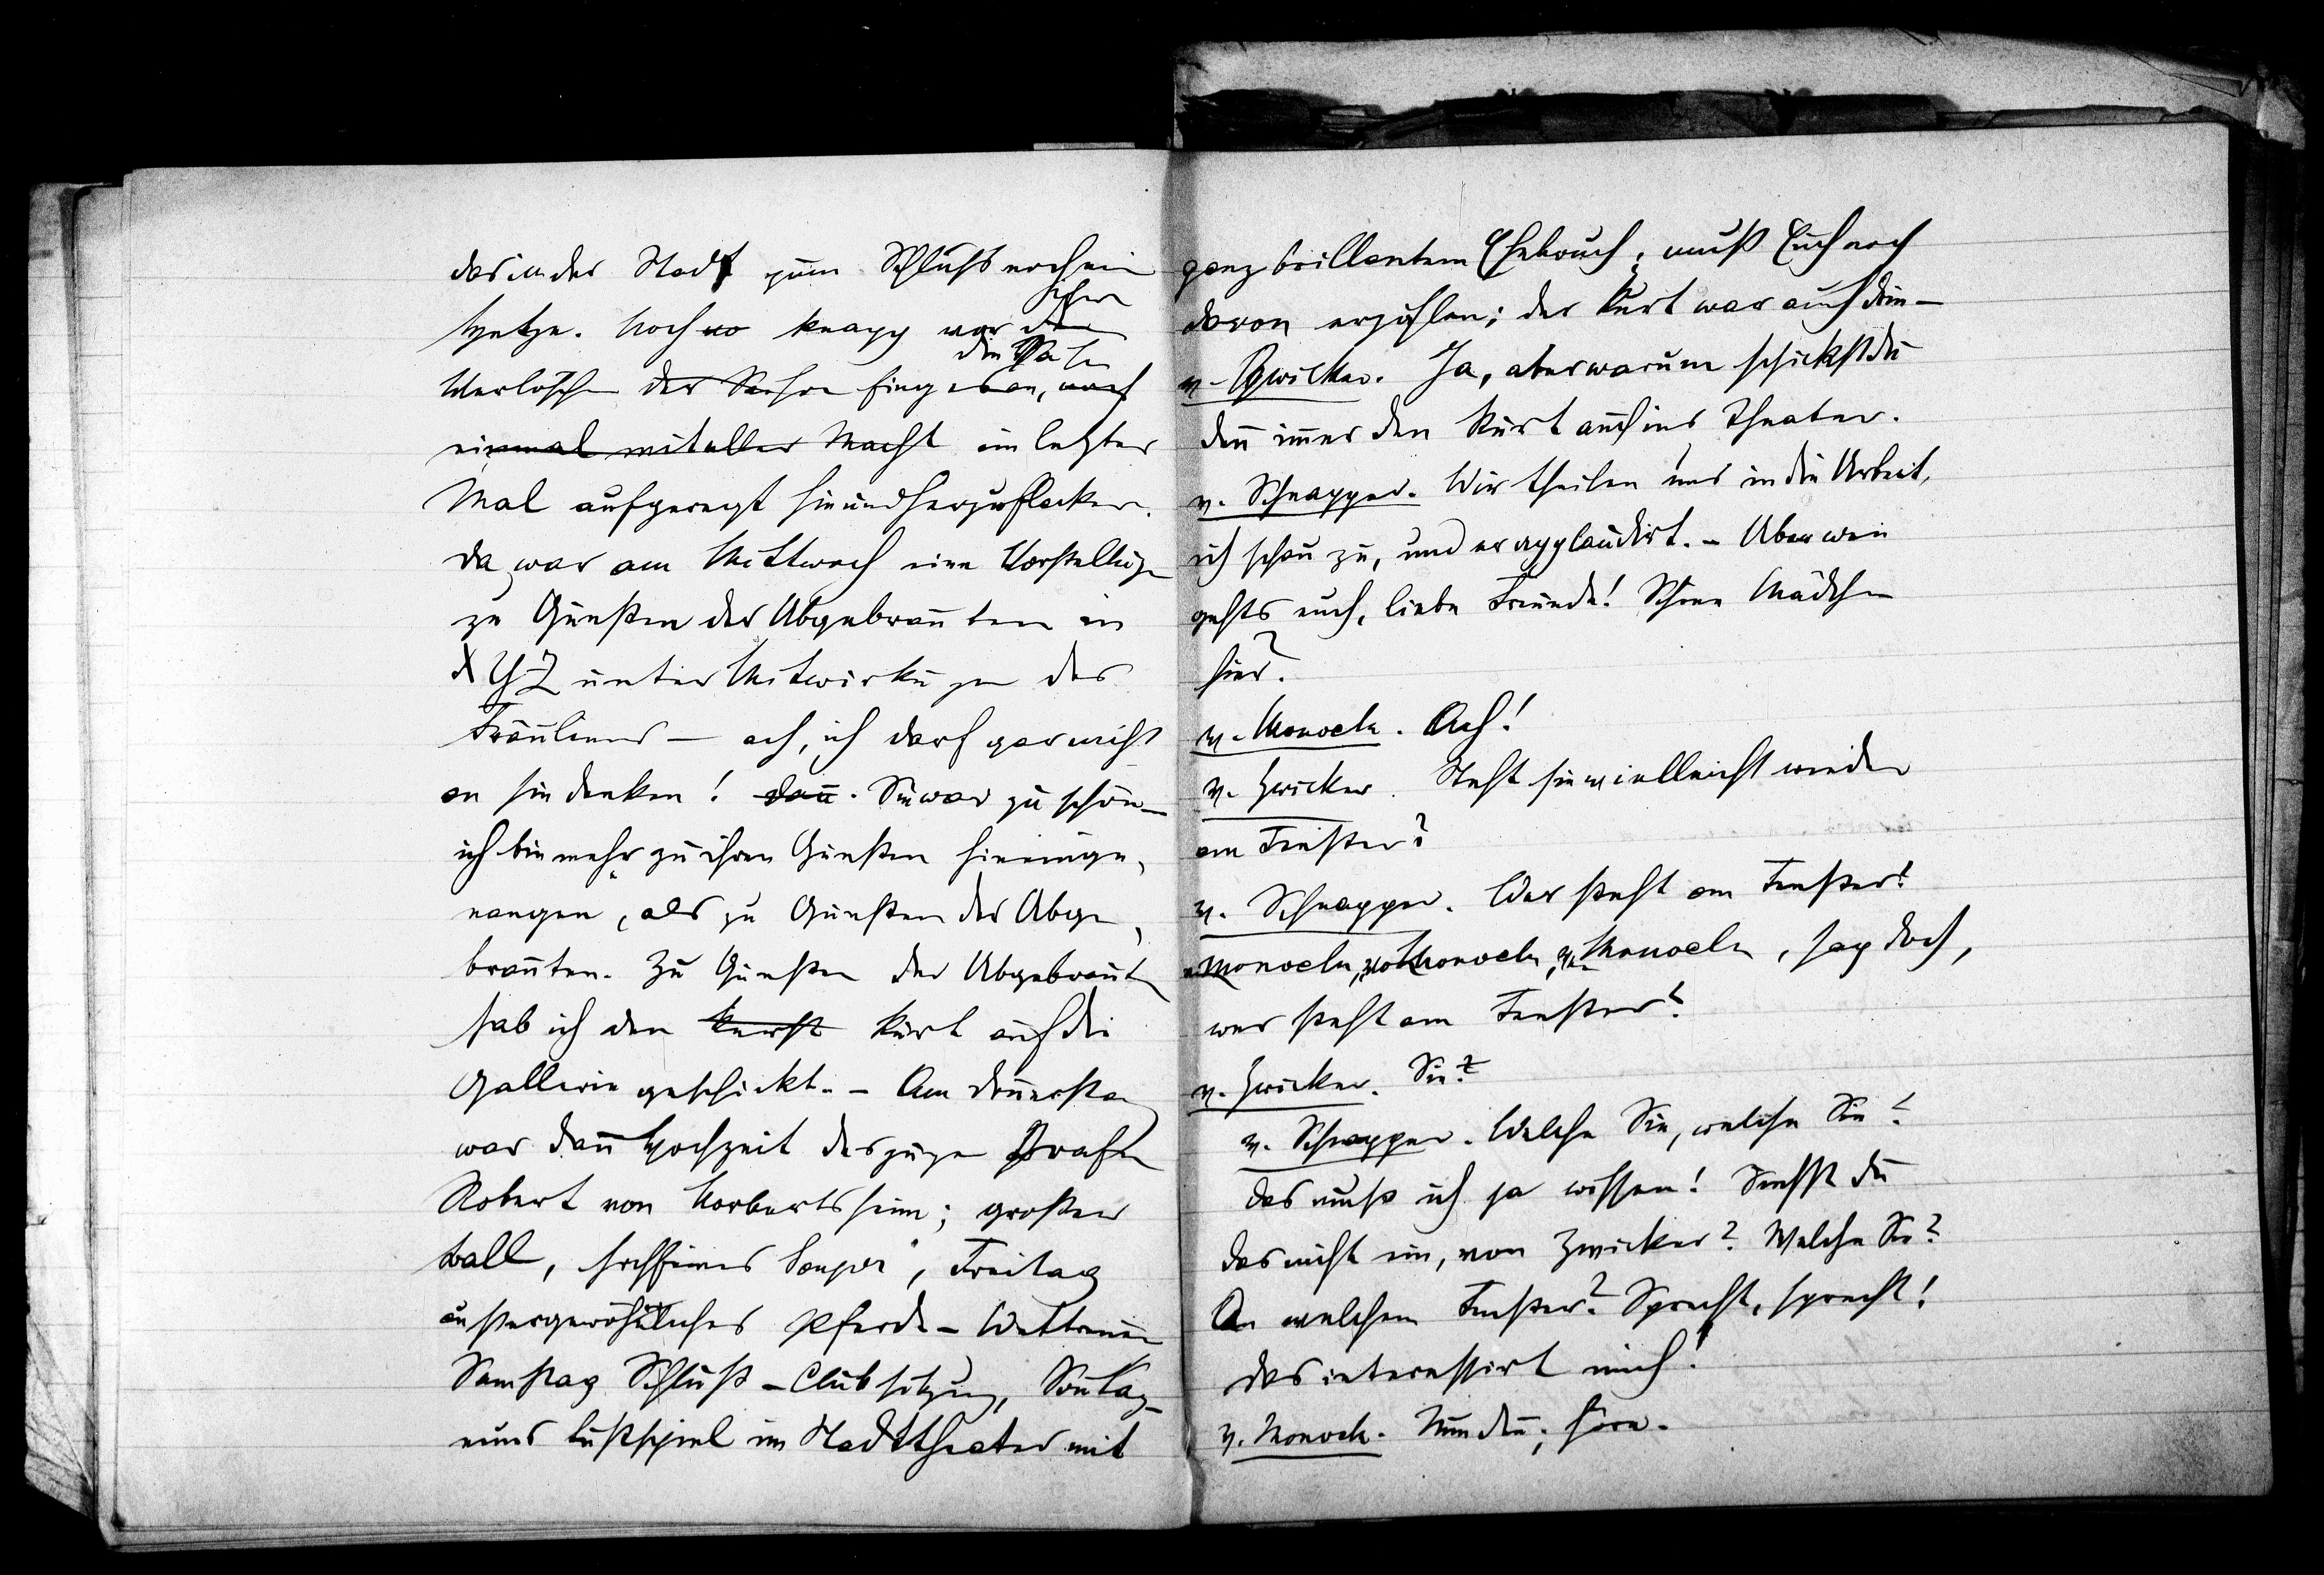 das in der Stadt zum Schluß noch ein
Hetze. Noch so knapp vor dem
ihrem
Verlöschen der Saison fing es an, noch
die Sai
einmal mit aller Macht ein letztes
Mal aufgeregt hin und herzuflackern.
Da war am Mittwoch eine Vorstellung
zu Gunsten der Abgebrannten in
XYZ unter Mitwirkung des
Fräuleins – ach, ich darf gar nicht
an sie denken! Dann. Sie war zu schön –
ich bin mehr zu ihren Gunsten hineinge-
gangen, als zu Gunsten der Abge-
brannten. Zu Gunsten der Abgebrannten
hab ich den Kurt auf die
Gallerie geschickt. – Am Donnerstag
war dann Hochzeit des jungen Grafen
Robert von Norbertsheim; großer
Ball, hochfeines Souper, Freitag
außergewöhnliches Pferde-Wettrennen
Samstag Schluß-Clubsitzung, Sonntag
neues Lustspiel im Stadttheater mit
ganz brillantem Ehebruch; muß Euch noch
davon erzählen; der Kurt war auch drin –
v. Zwicker. Ja, aber warum schickst du
denn immer den Kurt auch ins Theater.
v. Schnapper. Wir theilen uns in die Arbeit,
ich schau zu, und er applaudirt. – Aber wie
gehts euch, liebe Freunde! Schöne Mädchen
hier?
v. Monocle. Ach!
v. Zwicker. Steht sie vielleicht wieder
am Fenster?
v. Schnapper. Wer steht am Fenster?
Monocle, Monocle, Monocle, sag doch,
wer steht am Fenster?
v. Zwicker. Sie?
v. Schnapper. Welche Sie, welche Sie?
das muß ich ja wissen! Siehst du
das nicht ein, von Zwicker? Welche Sie?
An welchem Fenster? Sprecht, sprecht!
das interessirt mich!
v. Monocle. Nun denn; höre.